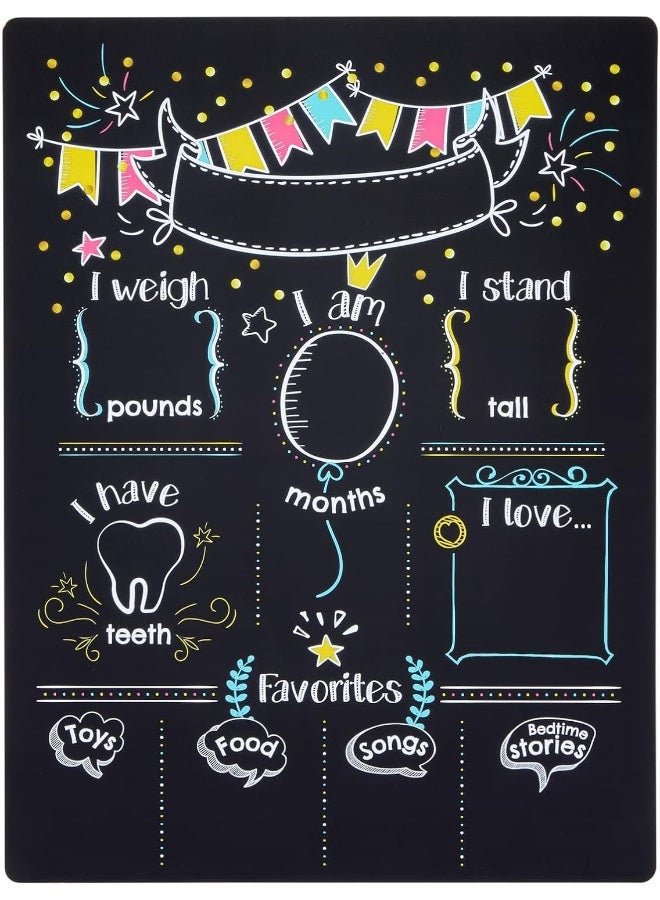 I weigh
pounds
I am
months
I stand
tall
I have
teeth
I love...
Favorites
Toys
Food
Songs
Bedtime
stories